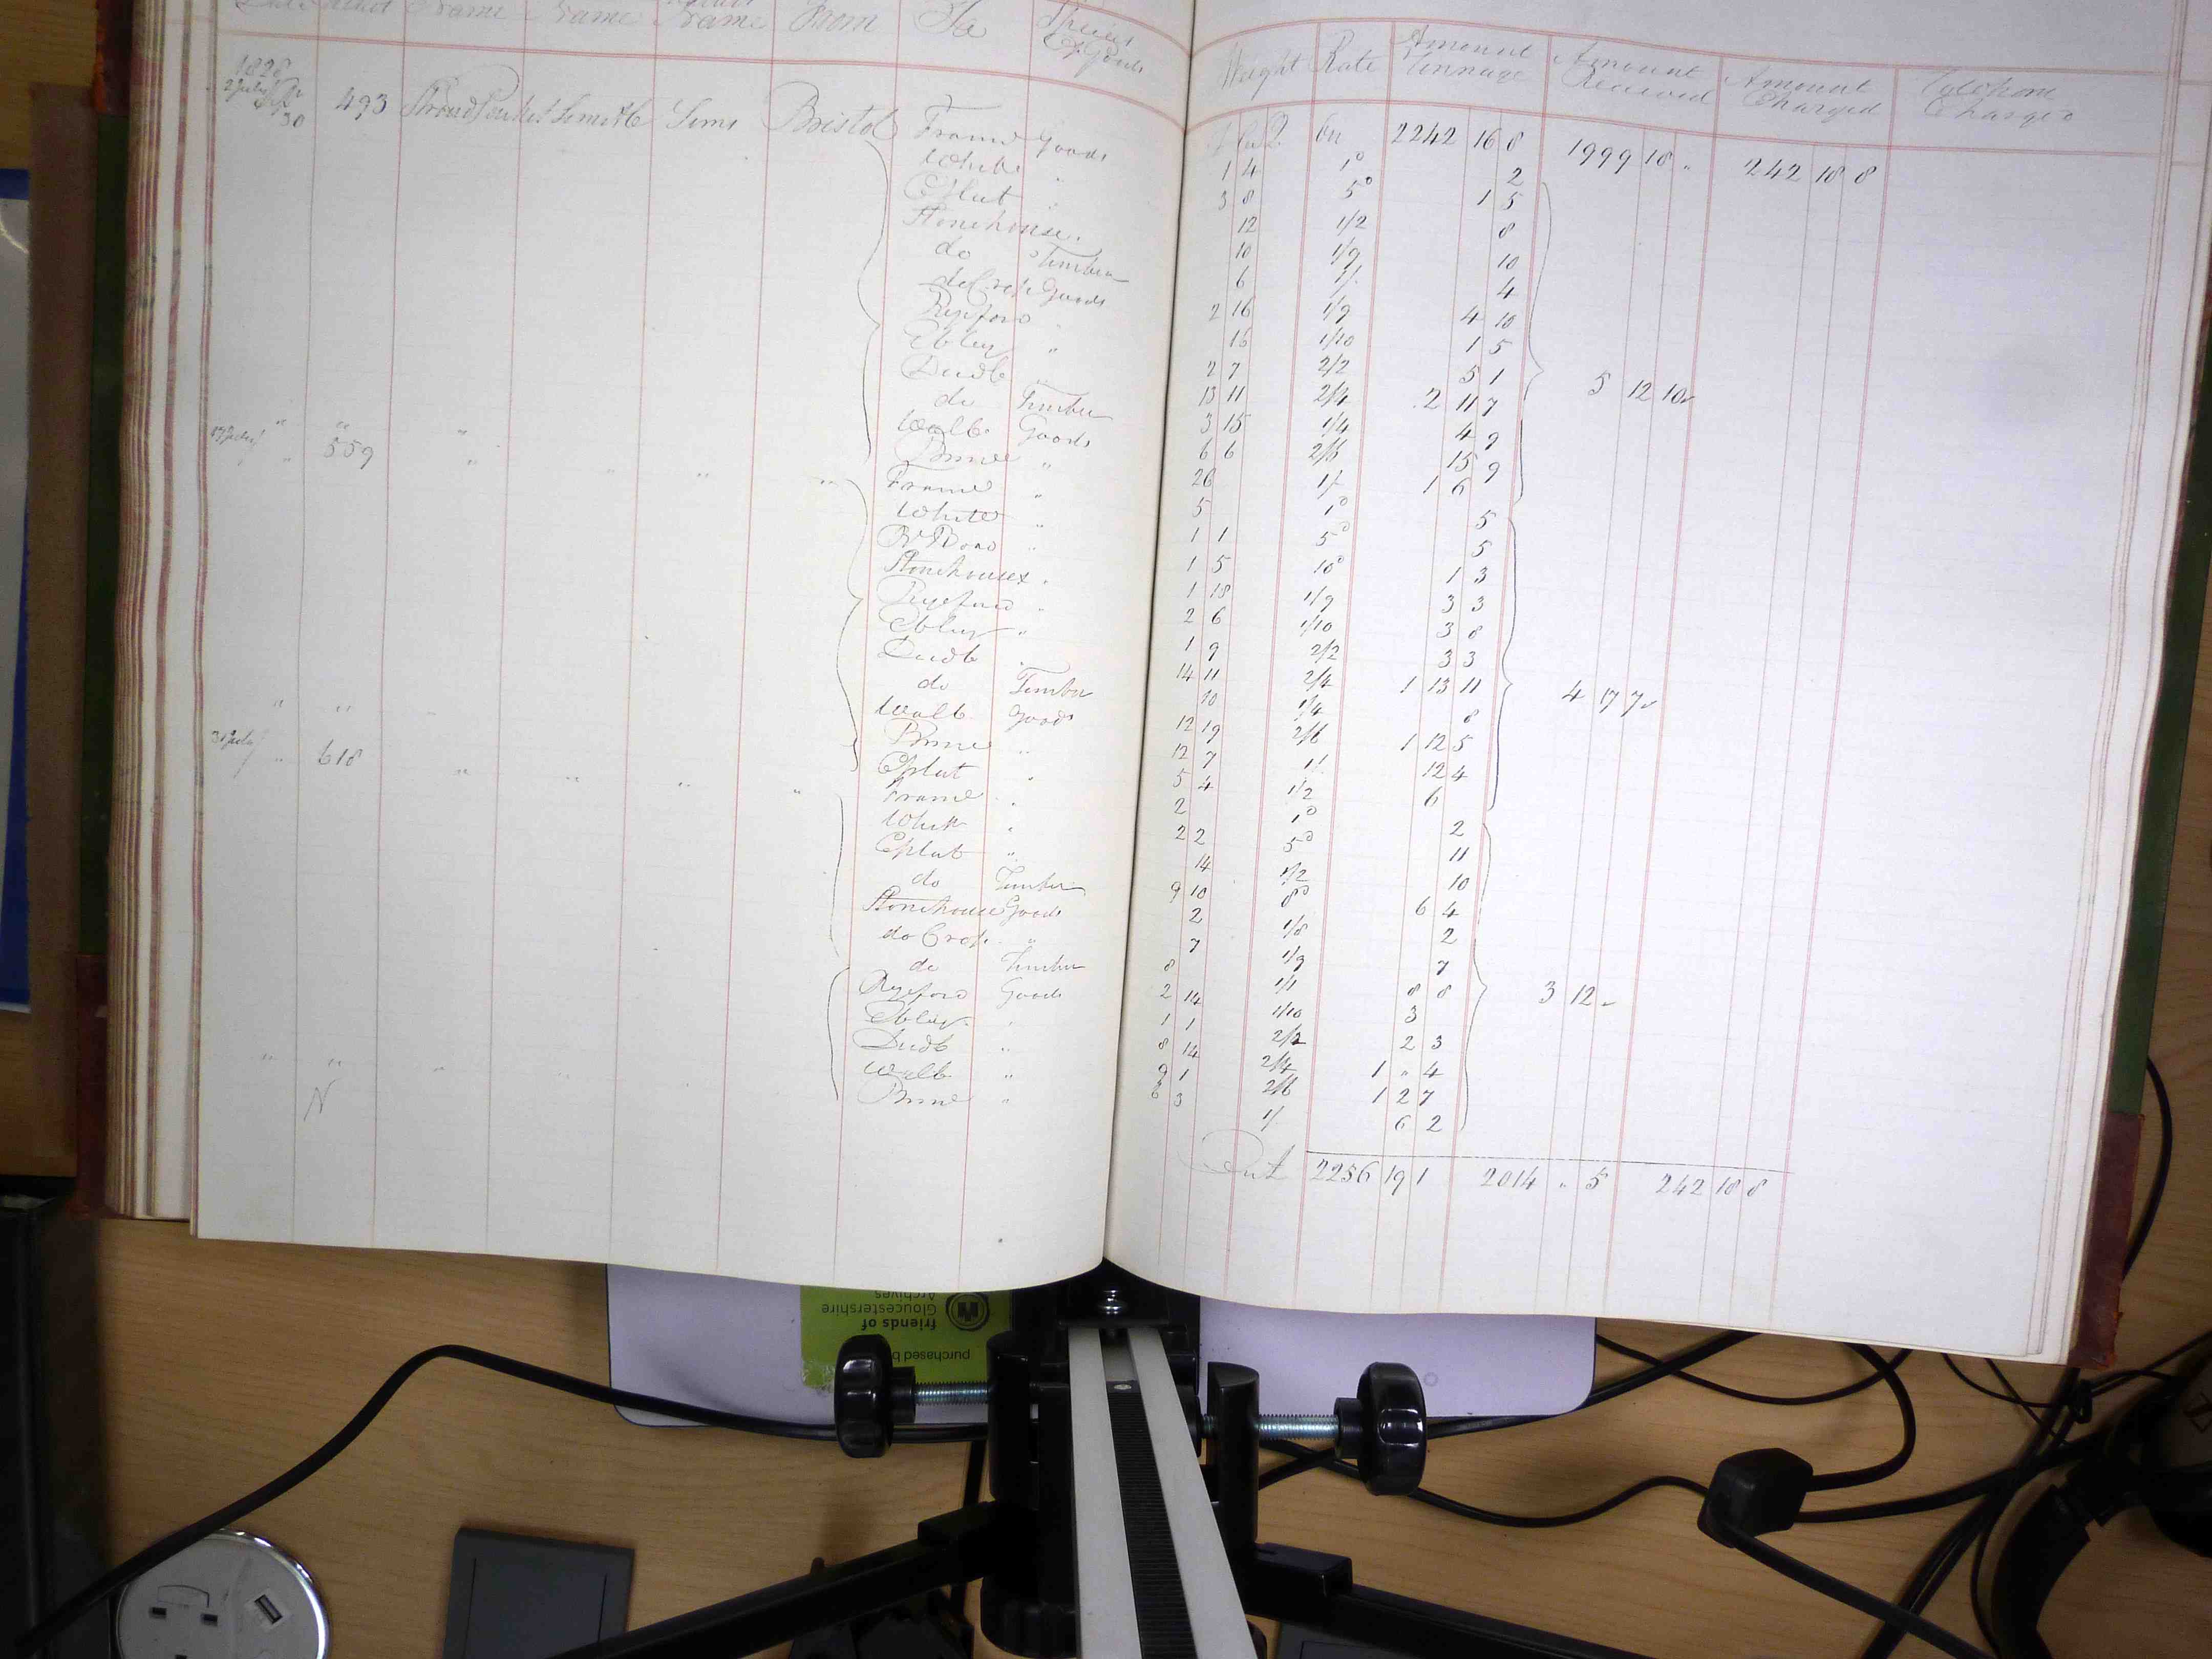 Name Name Name From To Species of Goods Weight Rate Amount Tonnage Amount Received Amount Charged
1828
2 July
30 493 Stroud Smith Sims Bristol Frame Goods 1 4 1ᵈ 2
By 2242 16 8 1999 18 " 242 18 8
White " 3 8 5ᵈ 1 5
Cplat " 12 1/2 8
Stonehouse " 10 1/9 10
do Timber 6 1/ 4
do Crops Goods 2 16 1/9 4 10
Ryeford " 16 1/10 1 5
Ebley " 2 7 2/2 5 1
Dudb " 13 11 2/4 2 11 7 5 12 10
do Timber 3 15 1/4 4 9
Wallb Goods 6 6 2/6 15 9
Brims " 26 1/ 1 6
" 559 " " " " Frame " 5 1ᵈ 5
White " 1 1 5ᵈ 5
" 1 5 10ᵈ 1 3
Stonehouse " 1 18 1/9 3 3
Ryeford " 2 6 1/10 3 8
Ebley " 1 9 2/2 3 3
Dudb " 14 11 2/4 1 13 11 4 17 7
do Timber 10 1/4 8
Wallb Goods 12 19 2/6 1 12 5
Brims " 12 7 1/ 12 4
Cplat " 5 4 1/2 6
31 July 618 " " " " Frame " 2 1ᵈ 2
White " 2 2 5ᵈ 11
Cplat " 14 1/2 10
do Timber 9 10 8ᵈ 6 4
Stonehouse Goods 2 1/8 2
do Crops " 7 1/9 7
do Timber 8 1/1 8 8
Ryeford Goods 2 14 1/10 3 3 12
Ebley " 1 1 2/2 2 3
Dudb " 8 14 2/4 1 " 4
Wallb " 9 1 2/6 1 2 7
Brims " 6 3 1/ 6 2
N
2256 19 1 2014 " 5 242 18 8
purchased b
friends of
Gloucestershire
Archives